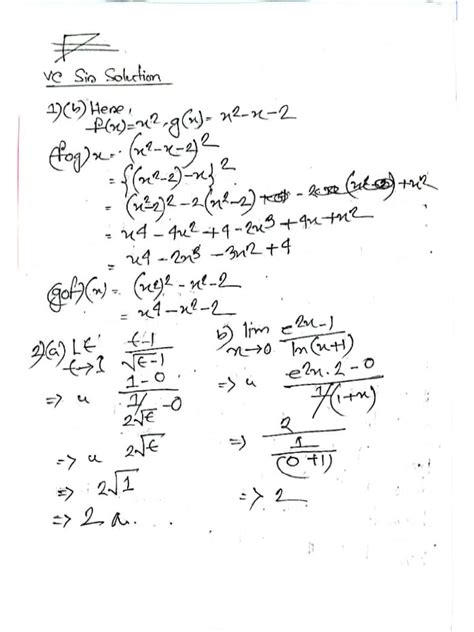 VC Sir Solution
1)(b) Here,
f(x)=x², g(x)= x²-x-2
(fog)x = (x²-x-2)²
= {(x²-2)-x}²
= (x²-2)² - 2(x²-2) +x²
= x4 - 4x² + 4 - 2x³ + 4x + x²
= x4 - 2x³ - 3x2 + 4
(gof)(x) = (x²)² - x² - 2
= x4 - x² - 2
2)(a) Lt t→1 t-1/√t-1
=> u 1-0/1/2√t -0
=> u 2√t
=> 2√1
=> 2
b) lim x→0 e2x-1/ln(x+1)
=> u e2x.2-0/1/(1+x)
=> 2/1/(0+1)
=> 2